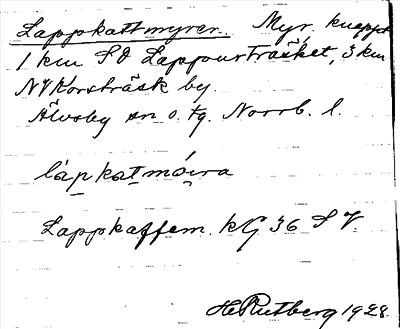 Lappkattmyren. Myr, knappt
1 km SO Lappourträsket, 3 km
NV Korsträsk by.
Älvsby sn o. tg. Norrb. l.
láp kat móira
Lappkaffem. kG 36 S V.
H Rutberg 1928